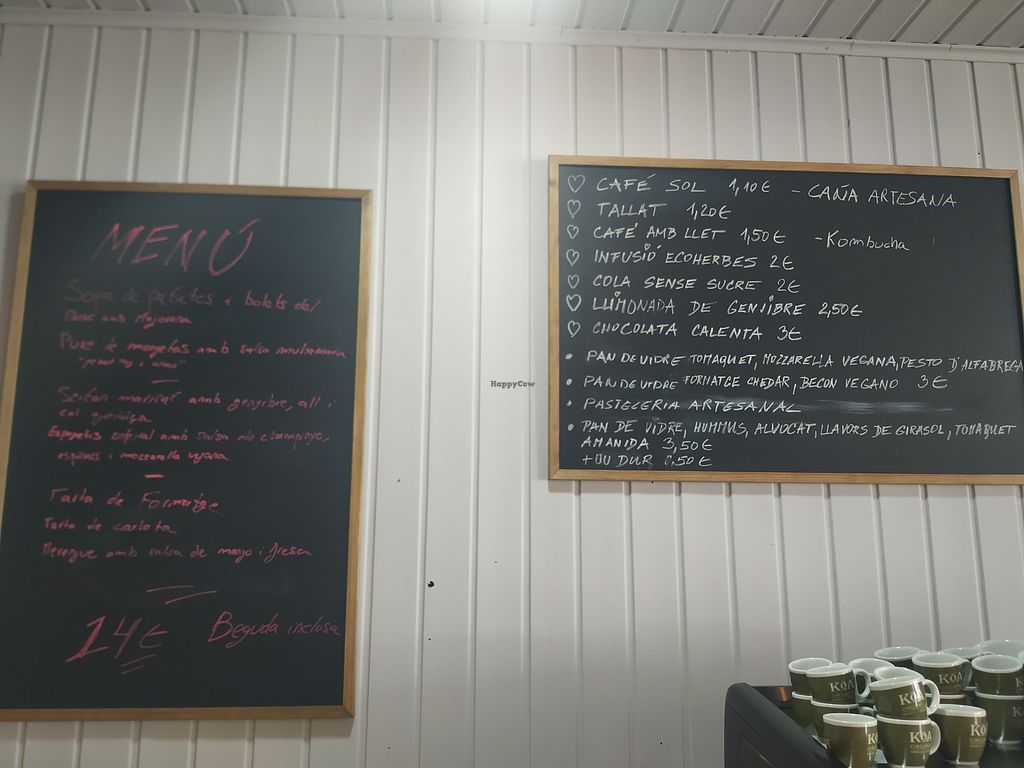 MENÚ
Sopa de patates i bolets del
Bosc amb Mejorana
Pure de mongetas amb salsa muhamara
Seitan marisat amb gengibre, all i
col
Espaguetis integral amb salsa de champinyo,
espinacs i mozzarella vegana
Tarta de Formatge
Tarta de carlota
Merengue amb salsa de mango i fresa
14€ Beguda inclosa
CAFÉ SOL 1,10€ - CAÑA ARTESANA
TALLAT 1,20€
CAFÉ AMB LLET 1,50€ - Kombucha
INFUSIÓ ECOHERBES 2€
COLA SENSE SUCRE 2€
LLIMONADA DE GENJIBRE 2,50€
CHOCOLATA CALENTA 3€
• PAN DE VIDRE TOMAQUET, MOZZARELLA VEGANA, PESTO D'ALFABREGA
• PAN DE VIDRE FORMATGE CHEDAR, BECON VEGANO 3€
• PASTELERIA ARTESANAL
• PAN DE VIDRE, HUMMUS, ALVOCAT, LLAVORS DE GIRASOL, TOMAQUET
AMANIDA 3,50€
+ OU DUR 0,50€
HappyCow
KOA
KOA
KOA
KOA